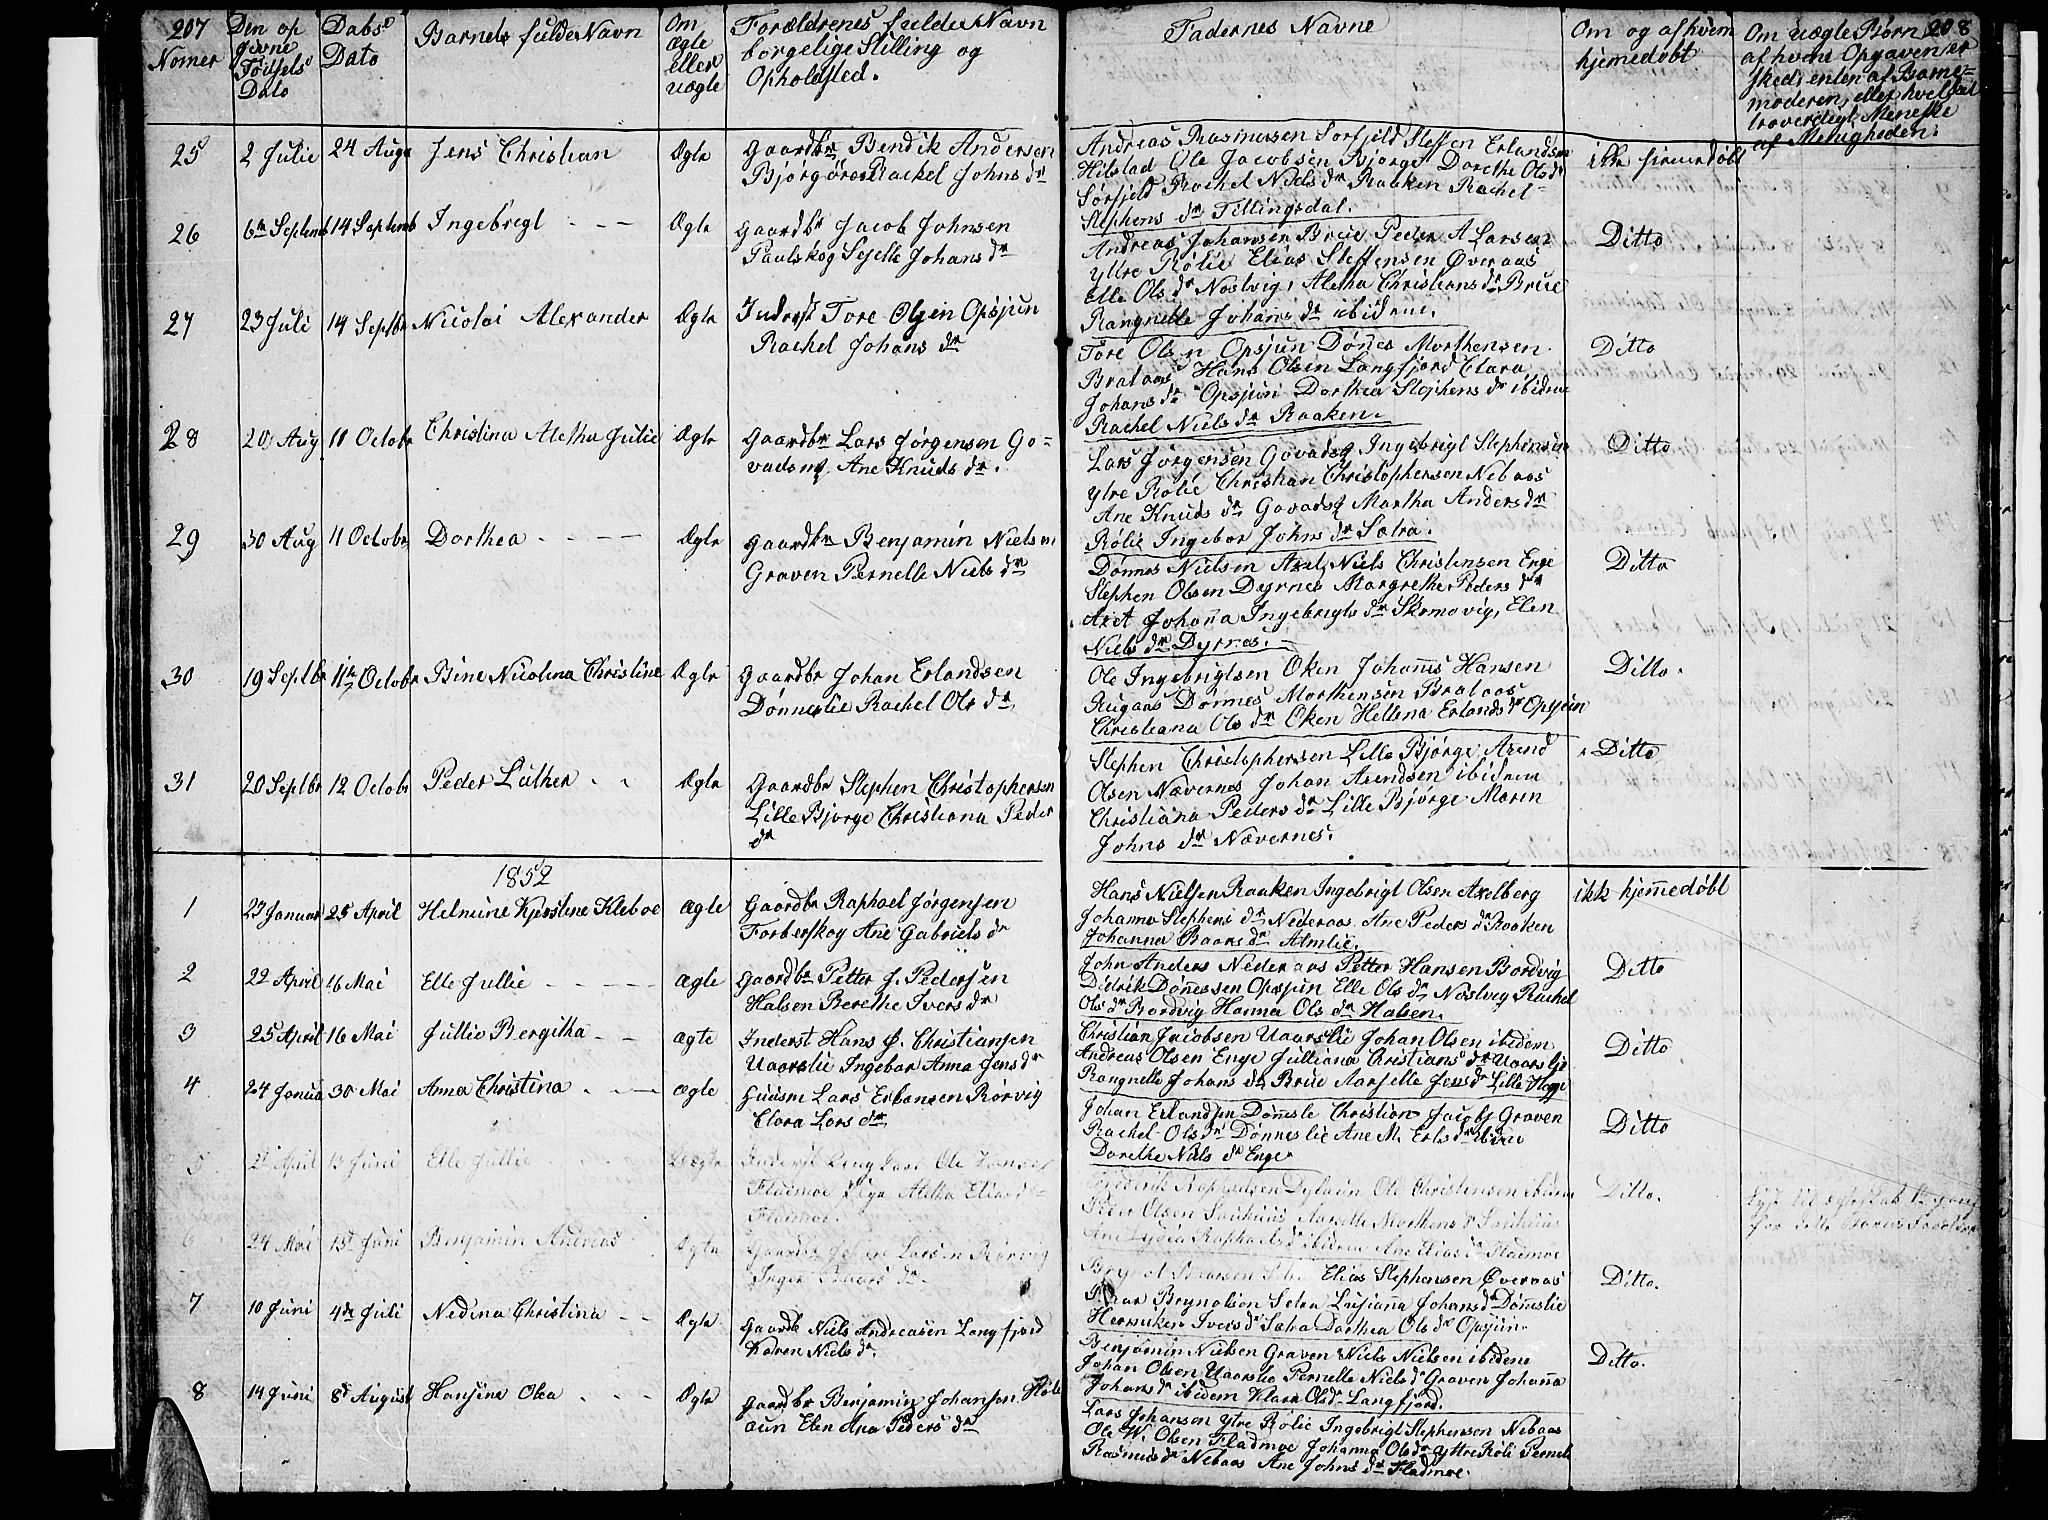 207
Nomer
Den op
givne
Fødsels
Dato
Dabs
Dato
Barnets fulde Navn
Om
Ægte
eller
uægte
Forældrenes fulde Navn
borgelige Stilling og
Opholdsted.
Fadernes Navne
Om og af hvem
hjemedøbt
208
Om uægte Børn
af hvem Opgaven er
sked, enten af Barne-
moderen, eller hvelset
troverdigt Meneske
af Menigheden.
25
2 Julie
24 Augs
Jens Christian
Ægte
Gaardbr Bendik Andersen
Bjørgøren Rachel Johns dr
Andreas Rasmussen Sørfjeld Steffen Erlandsen
Hilstad Ole Jacobsen Bjørge Dorethe Ols dr
Sørfjeld Rachel Niels dr Raaken Rachel
Stephens dr Tillingsdal.
ikke hjemedøbt
26
6te Septemb
14 Septemb
Ingebregt - - -
Ægte
Gaardbr Jacob Johnsen
Paulskog Sejelle Johans dr
Andreas Johansen Brue Peder A Larsen
Yttre Rølie Elias Steffensen Øveraas
Elle Ols dr Nøstvig, Aletha Christians dr Brue
Rangnelle Johans dr ibidem.
Ditto
27
23 Juli
14 Septbr
Nicolai Alexander
Ægte
Inderst Tore Olsen Opsjun
Rachel Johans dr
Tore Olsen Opsjun Dønes Morthensen
Brataas Hans Olsen Langfjord Clara
Johans dr Opsjun Dorthea Stephens dr ibidem
Rachel Niels dr Raaken.
Ditto
28
20 Aug
11 Octobr
Christina Aletha Julie
Ægte
Gaardbr Lars Jørgensen Go-
vadsny, Ane Knuds dr.
Lars Jørgensen Govads Ingebrigt Stephensen
Ytre Rølie Christian Christophersen Nebaas
Ane Knuds dr Govads Martha Anders dr
Rølie Ingebor Johns dr Sætra.
Ditto
29
30 Aug
11 Octobr
Dorthea - - - -
Ægte
Gaardbr Benjamin Nielsen
Graven Pernelle Niels dr
Dønnes Nielsen Axel, Niels Christensen Enge
Stephen Olsen Dyrnes Margrethe Peders dr
Axel Johanna Ingebrigts dr Skomovig, Elen
Niels dr Dyrnes.
Ditto
30
19 Septbr
11te Octobr
Bine Nicolina Christine
Ægte
Gaardbr Johan Erlandsen
Dønneslie Rachel Ols dr
Ole Ingebrigtsen Oken Johannes Hansen
Rugaas Dønnes Morthensen Brataas
Christiana Ols dr Oken Hellena Erlands dr Opsjun
Ditto.
31
20 Septbr
12 Octobr
Peder Luther
Ægte
Gaardbr Stephen Christophersen
Lille Bjørge Christiana Peder
dr
Stephen Christophersen Lille Bjørge Arend
Olsen Nævernes Johan Arendsen ibidem
Christiana Peders dr Lille Bjørge Maren
Johns dr Nævernes.
Ditto
1852
1
23 Januar
25 April
Helmine Kjerstine Kleboe
ægte
Gaardbr Raphael Jørgensen
Forberskog Ane Gabriels dr
Hans Nielsen Raaken Ingebrigt Olsen Axelberg
Johanna Stephens dr Nederaas Ane Peders dr Raaken
Johanna Baars dr Almlie.
ikk hjemedøbt
2
22 April
16 Mai
Elle Jullie - - - -
ægte
Gaardbr Petter J. Pedersen
Halsen Berethe Ivers dr
John Anders Nederaas Petter Hansen Bordvig
Didrik Dønnessen Opsjun Elle Ols dr Nøstvig Rachel
Ols dr Bordvig Hanna Ols dr Halsen.
Ditto
3
25 April
16 Mai
Jullie Bergitha - -
ægte
Inderst Hans Ø. Christiansen
Uaarslie Ingebar Anna Jens dr
Christian Jacobsen Uaarslie Johan Olsen ibidem
Andreas Olsen Enge Julliana Christians dr Uaarslie
Rangnelle Johans dr Brue Aarselle Jens dr Lille Hagge
Ditto
4
24 Janua
30 Mai
Anna Christina - - -
ægte
Huusm Lars Erlansen Rørvig
Clara Lars dr
Johan Erlandsen Dønnesle Christian Jacobs Graven
Rachel Ols dr Dønneslie Ane M. Erls dr ibidem
Dorethe Niels dr Enge
Ditto
5
April
13 Juni
Elle Jullie
Uægte
Ole
Fladmoe Pige Aletha Elias dr
Fladmoe.
Frederik Raphaelsen Ole Christensen ibidem
Peder Olsen Aarselle Morthens dr
Ane Lydia Raphaels dr ibidem Ane Elias dr Fladmoe
Ditto.
6
24 Mai
15 Juni
Benjamin Andreas
Ægte
Gaardbr Johan Larsen Rørvig
Inger Baars dr.
Elias Stephensen Øveraas
Brynolsen Setra Lusianna Johans dr Dønneslie
Ivers dr Dorthea Ols dr Opsjun
Ditto.
7
10 Juni
4de Juli
Nedina Christina - -
Ægte
Gaardb Niels Andreasen Langfjord
Karen Niels dr.
Benjamin Nielsen Graven Niels Nielsen ibidem
Johan Olsen Uaarslie Pernelle Niels dr Graven Johanna
Johans dr ibidem Klara Ols dr Langfjord.
Ditto.
8
14 Juni
8d August
Hansine Olea - -
Ægte
Gaardbr Benjamin Johansen
Elen Ana Peders dr
Lars Johansen Ytre Rølie Ingebrigt Stephensen Nebaas
Ole W. Olsen Fladmoe Johanna Ols dr Yttre Røli Pernele
Rasmus dr Nebaas Ane Johns dr Fladmoe.